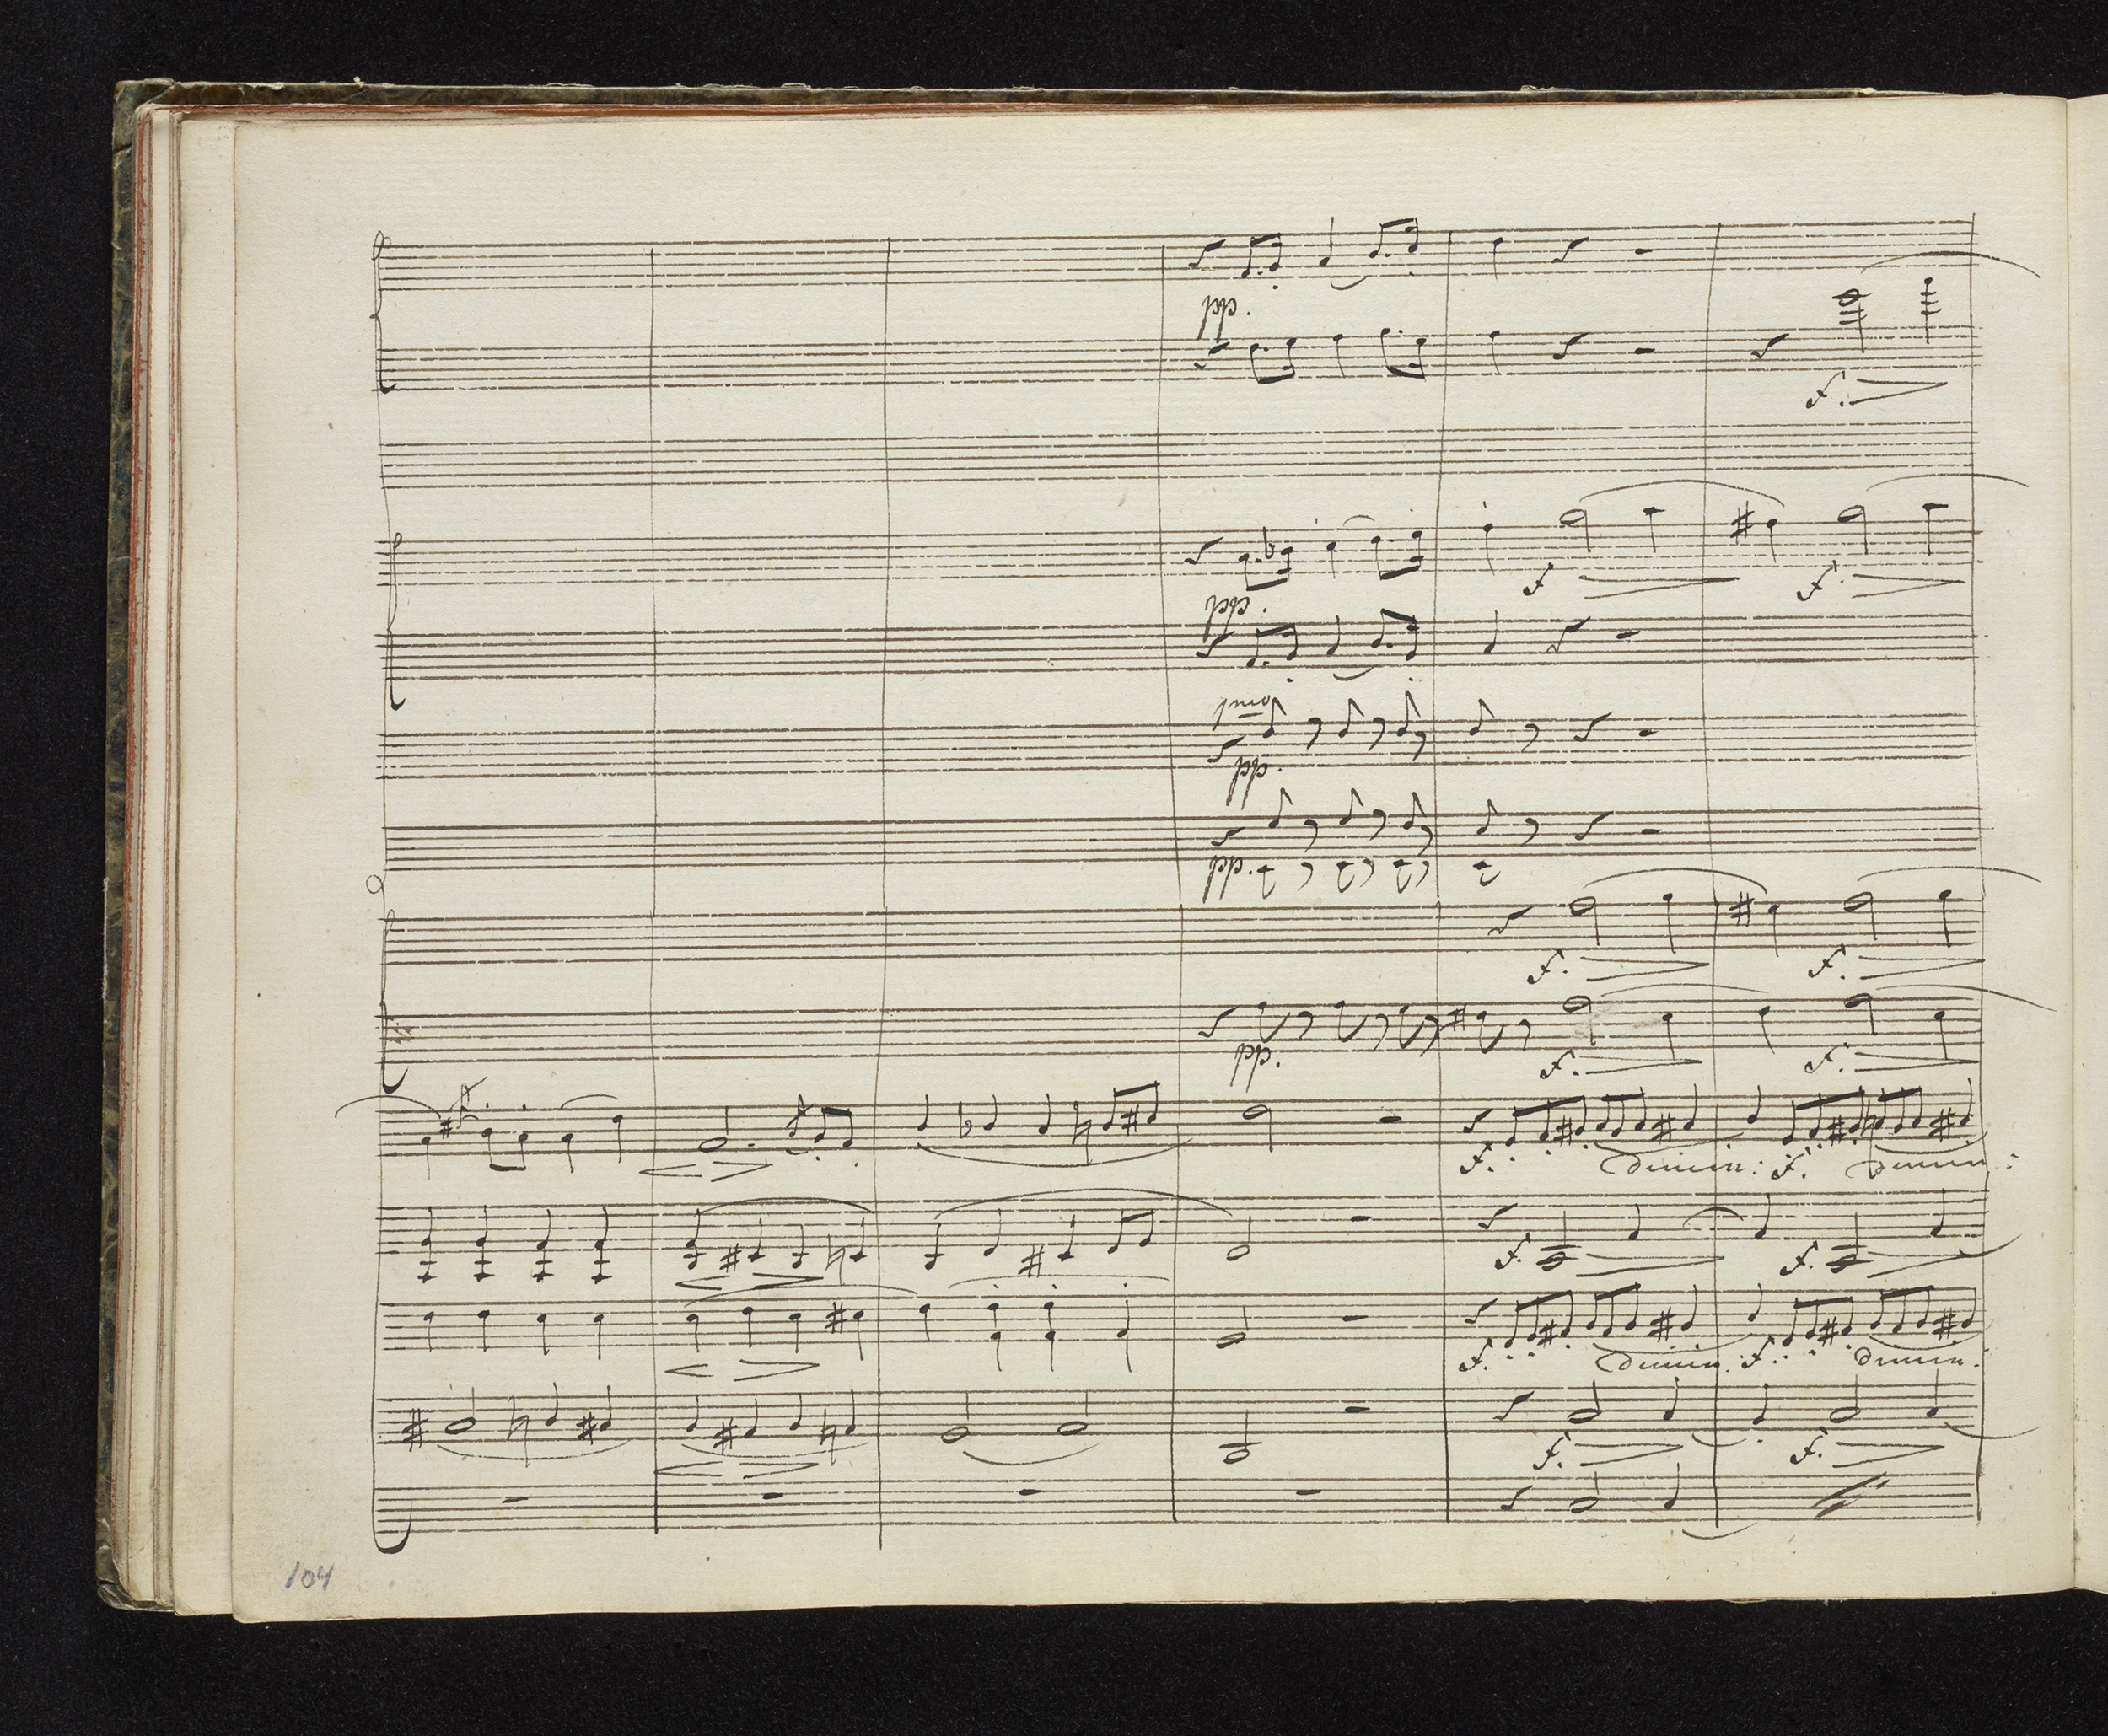 pp.
f.
pp.
f f.
pmo
pp.
pp.
f. f.
pp.
f. f.
f. dimin: f. dimin:
f. f.
f. dimin. f. dimin.
f. f.
104